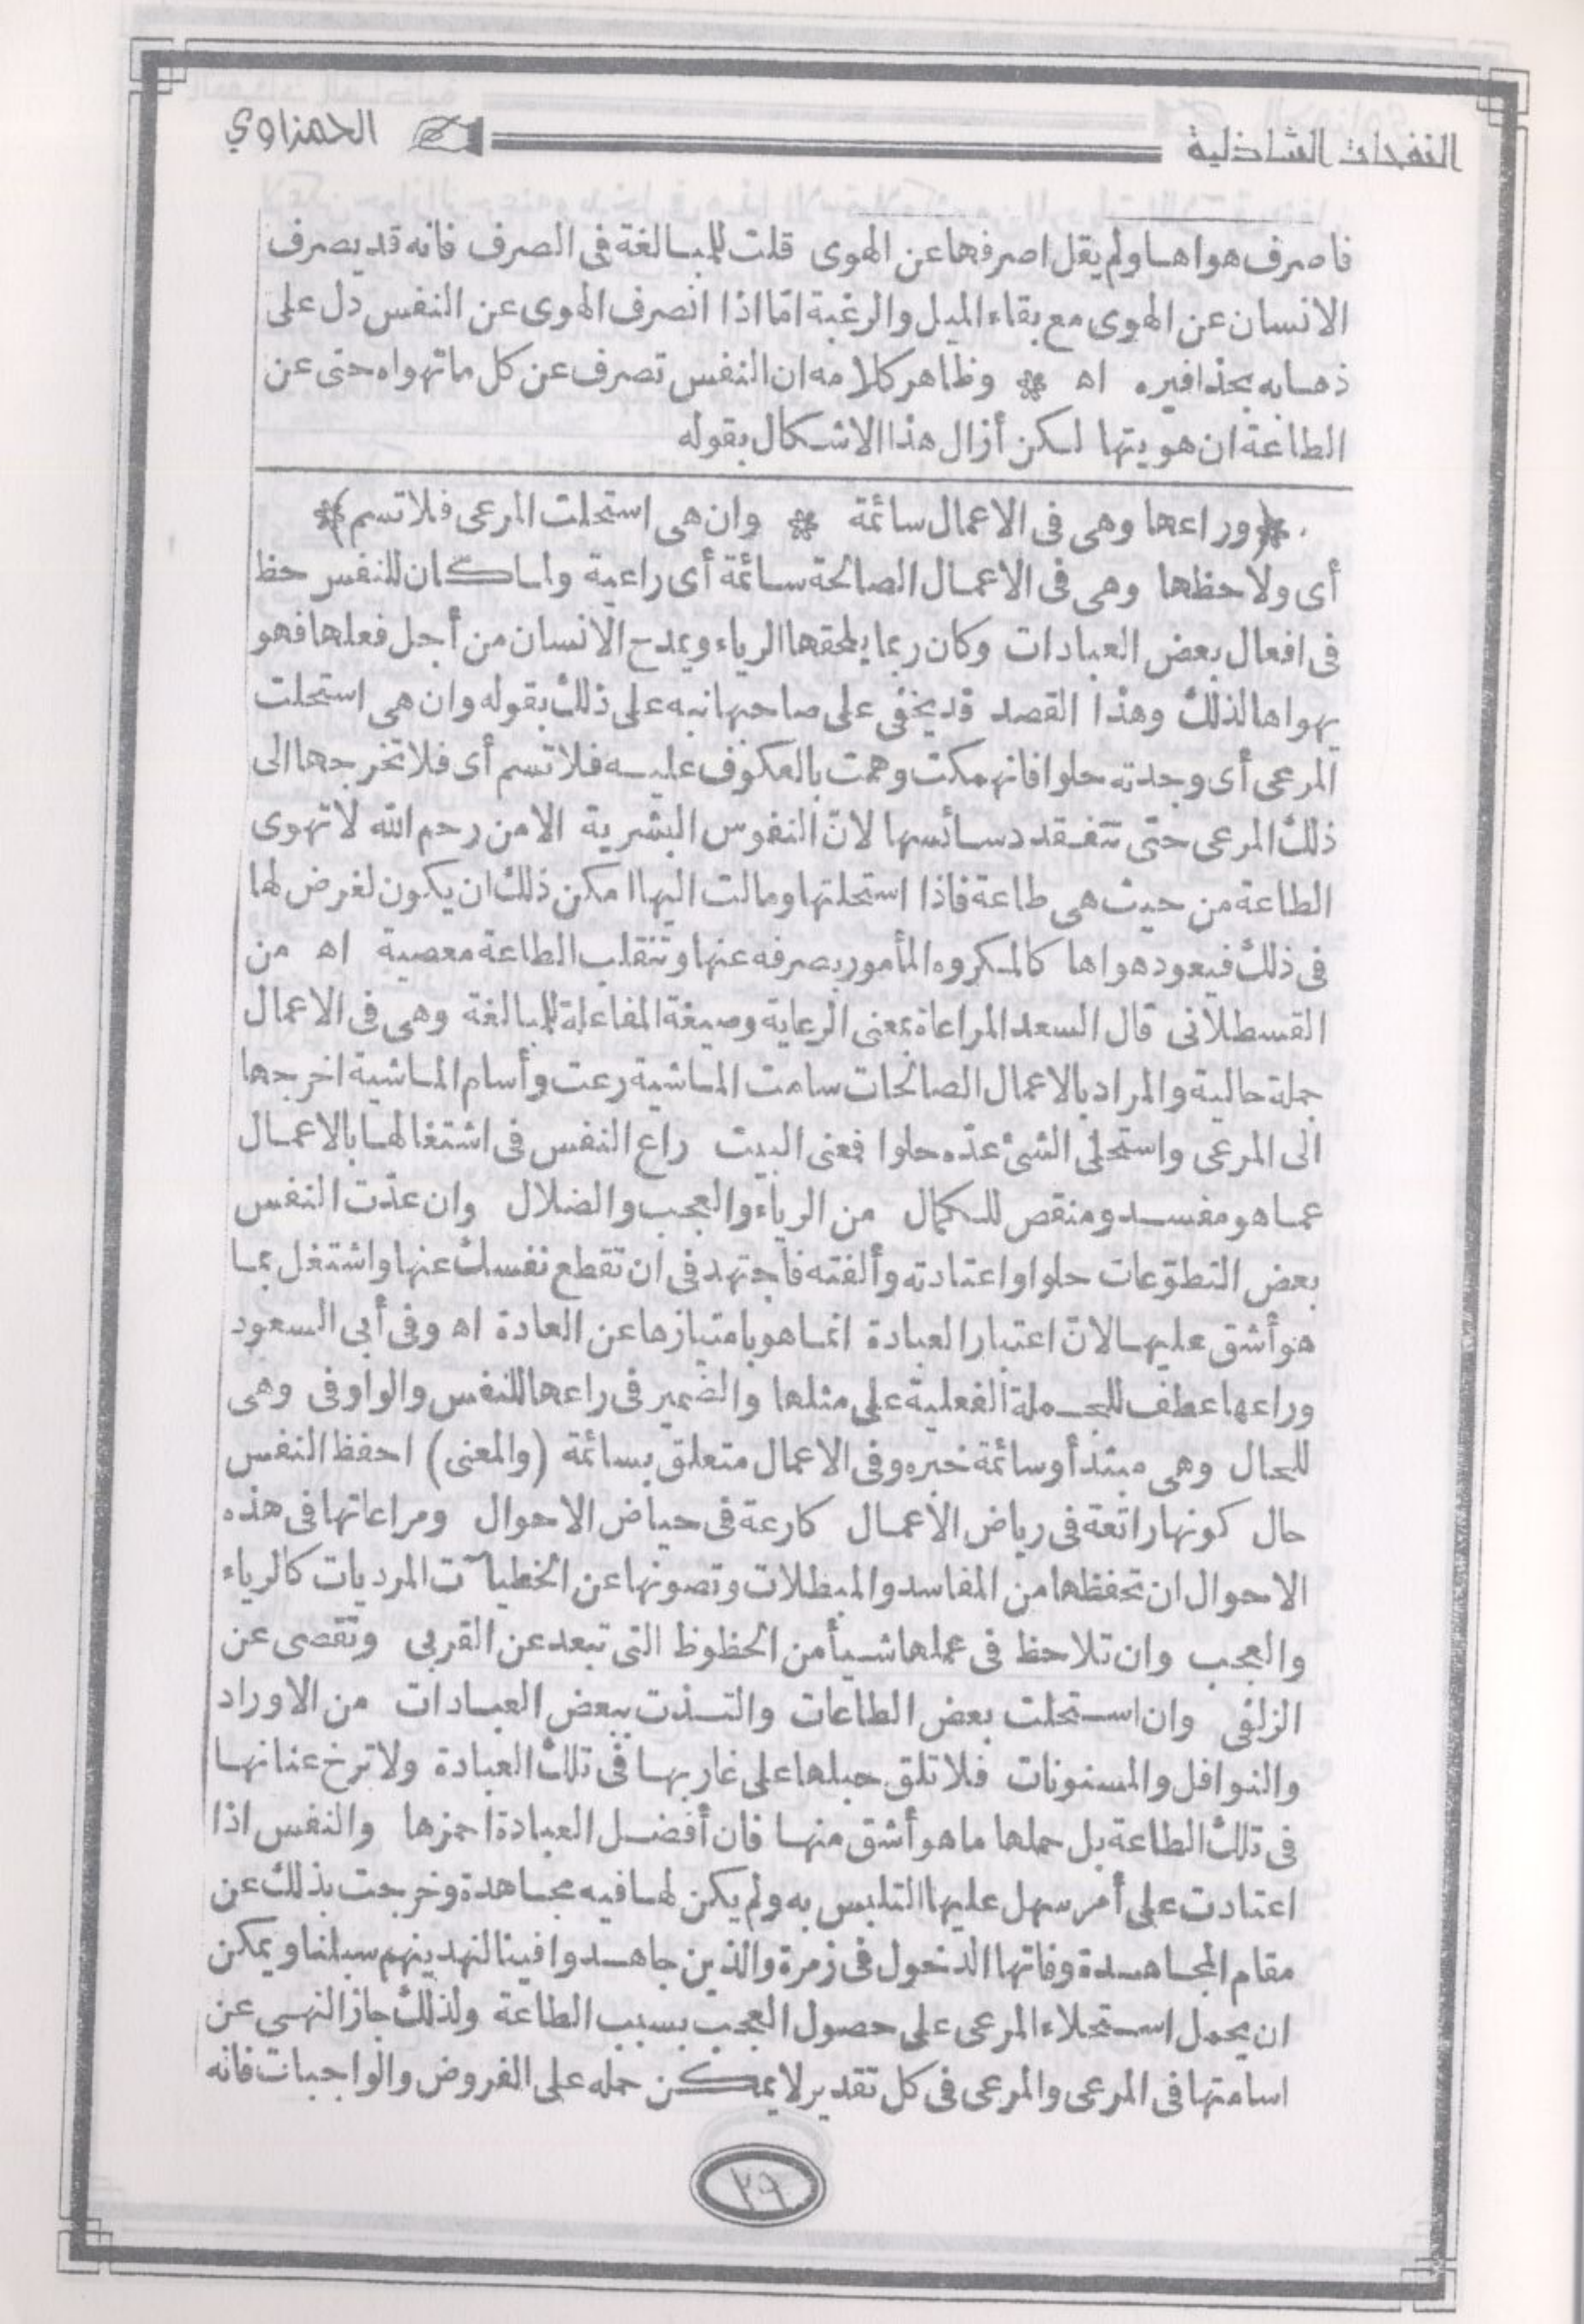 النفحات الشاذلية الحمزاوي
فاصرف هواها ولم يقل اصرفها عن الهوى قلت للمبالغة فى الصرف فانه قد يصرف
الانسان عن الهوى مع بقاء الميل والرغبة امّا اذا انصرف الهوى عن النفس دل على
ذهابه بحذافيره اه * وظاهر كلامه ان النفس تصرف عن كل ما تهواه حتى عن
الطاعة ان هويتها لكن أزال هذا الاشكال بقوله
* (وراعها وهى فى الاعمال سائمة * وان هى استحلت المرعى فلا تسم) *
أى ولاحظها وهى فى الاعمال الصالحة سائمة أى راعية ولما كان للنفس حظ
فى افعال بعض العبادات وكان ربما يلحقها الرياء ويمدح الانسان من أجل فعلها فهو
يهواها لذلك وهذا القصد قد يخفى على صاحبها نبه على ذلك بقوله وان هى استحلت
المرعى أى وجدته حلوا فانهمكت وهمت بالعكوف عليه فلا تسم أى فلا تخرجها الى
ذلك المرعى حتى تتفقد دسائسها لانّ النفوس البشرية الا من رحم الله لا تهوى
الطاعة من حيث هى طاعة فاذا استحلتها ومالت اليها امكن ذلك ان يكون لغرض لها
فى ذلك فيعود هواها كالمكروه المأمور بصرفه عنها وتنقلب الطاعة معصية اه من
القسطلانى قال السعد المراعاة بمعنى الرعاية وصيغة المفاعلة للمبالغة وهى فى الاعمال
جملة حالية والمراد بالاعمال الصالحات سامت الماشية رعت وأسام الماشية اخرجها
الى المرعى واستحلى الشئ عدّه حلوا فمعنى البيت راع النفس فى اشتغالها بالاعمال
عما هو مفسد ومنقص للكمال من الرياء والعجب والضلال وان عدّت النفس
بعض التطوّعات حلوا واعتادته وألفته فاجتهد فى ان تقطع نفسك عنها واشتغل بما
هو أشق عليها لانّ اعتبار العبادة انما هو بامتيازها عن العادة اه وفى أبى السعود
وراعها عطف للجملة الفعلية على مثلها والضمير فى راعها للنفس والواو فى وهى
للحال وهى مبتدأ وسائمة خبره وفى الاعمال متعلق بسائمة (والمعنى) احفظ النفس
حال كونها راتعة فى رياض الأعمال كارعة فى حياض الاحوال ومراعاتها فى هذه
الاحوال ان تحفظها من المفاسد والمبطلات وتصونها عن الخطيآت المرديات كالرياء
والعجب وان تلاحظ فى عملها شيأ من الحظوظ التى تبعد عن القربى وتقصى عن
الزلفى وان استحلت بعض الطاعات والتذت ببعض العبادات من الاوراد
والنوافل والمسنونات فلا تلق حبلها على غاربها فى تلك العبادة ولا ترخ عنانها
فى تلك الطاعة بل حملها ما هو أشق منها فان أفضل العبادة احمزها والنفس اذا
اعتادت على أمر سهل عليها التلبس به ولم يكن لها فيه مجاهدة وخرجت بذلك عن
مقام المجاهدة وفاتها الدخول فى زمرة والذين جاهدوا فينا لنهدينهم سبلنا ويمكن
ان يحمل استحلاء المرعى على حصول العجب بسبب الطاعة ولذلك جاز النهى عن
اسامتها فى المرعى والمرعى فى كل تقدير لا يمكن حمله على الفروض والواجبات فانه
٢٩